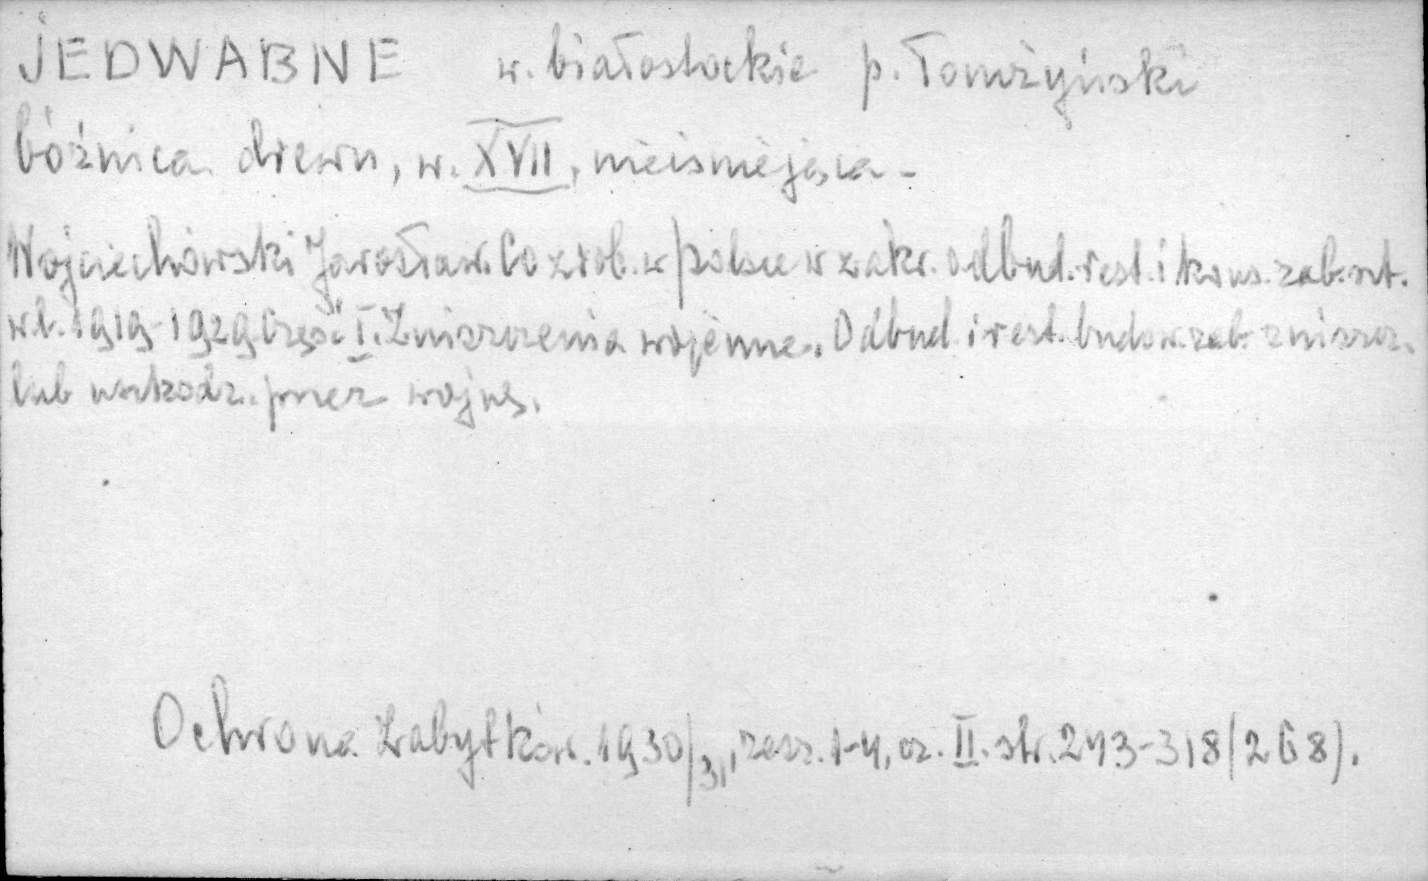 JEDWABNE w. białostockie p. Łomżyński
bóżnica drewn, w. XVII, nieistniejąca -
Wojciechowski Jarosław. Co zrob. w Polsce w zakr. odbud. rest. i kons. zab. szt.
w l. 1919-1929 Część I. Zniszczenia wojenne. Odbud. i rest. budow. zab. zniszcz.
lub uszkodz. przez wojnę.
Ochrona Zabytków. 1930/31, zesz. 1-4, cz. II. str. 243-318 (268).